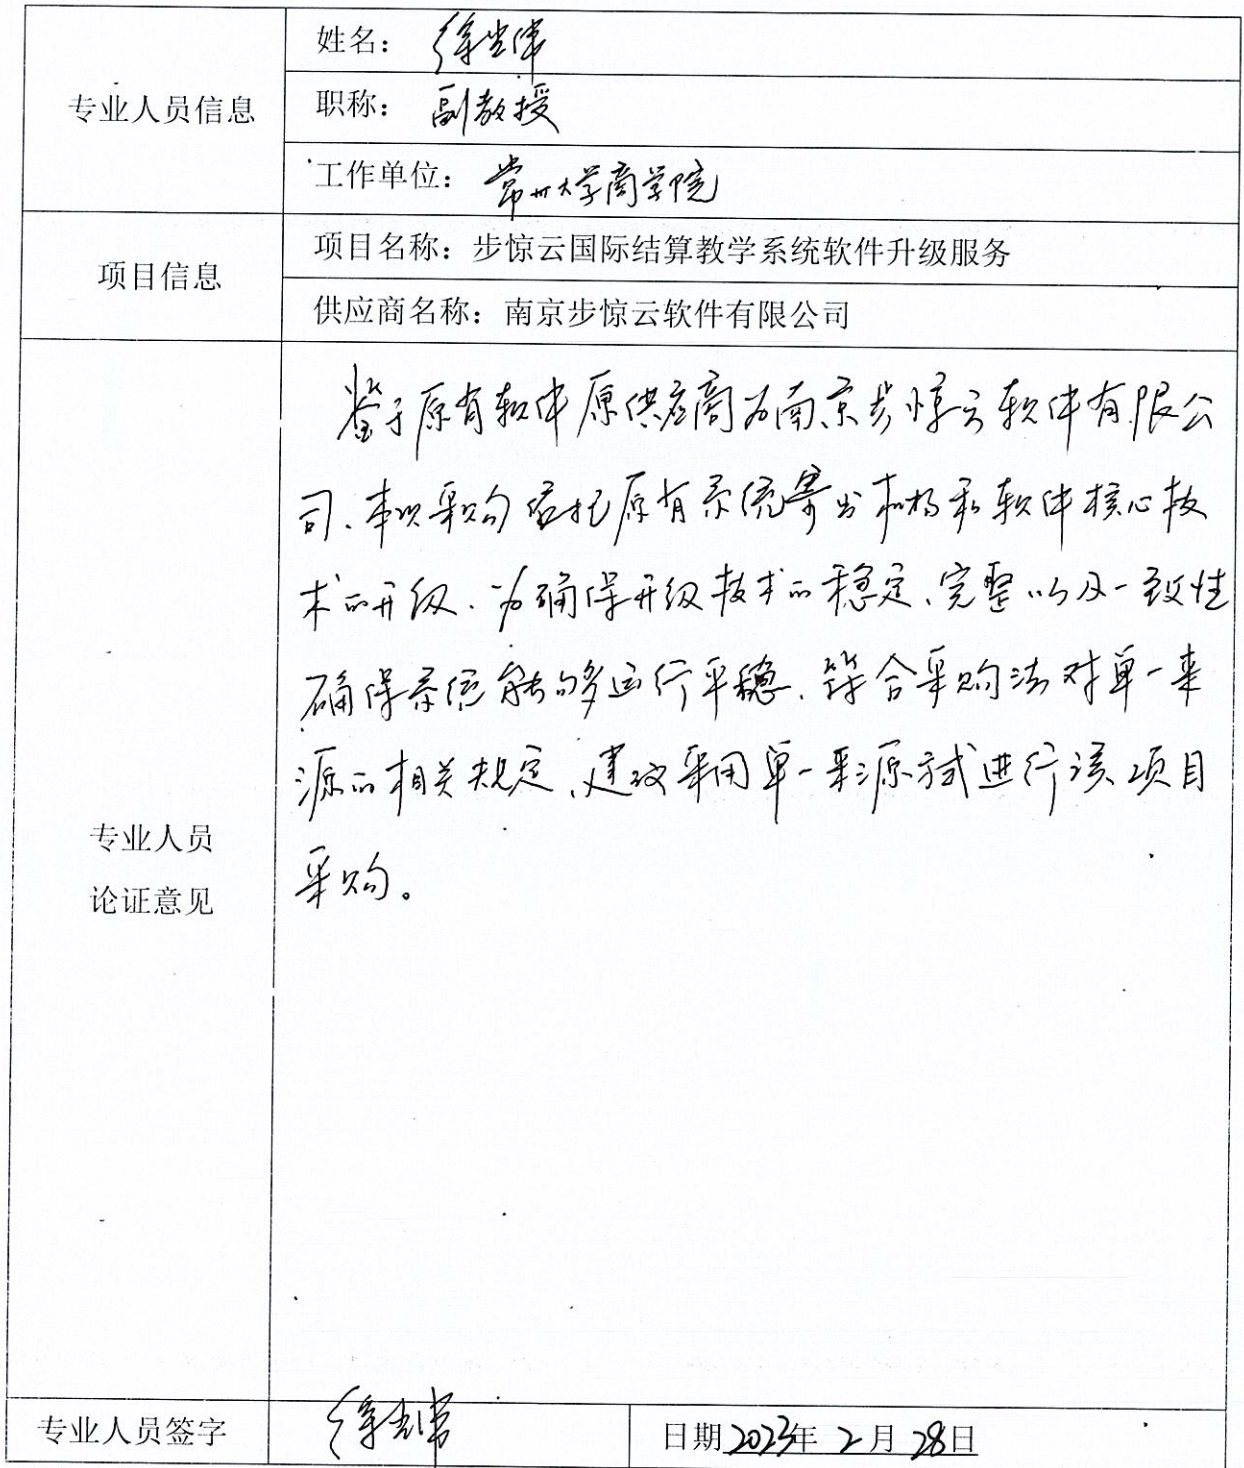 专业人员信息
姓名：徐光伟
职称：副教授
工作单位：常州大学商学院
项目信息
项目名称：步惊云国际结算教学系统软件升级服务
供应商名称：南京步惊云软件有限公司
专业人员
论证意见
鉴于原有软件原供应商为南京步惊云软件有限公
司、本次采购依托原有系统 和软件核心技
术的升级、为确保升级技术的稳定、完整以及一致性
确保系统能够运行平稳、符合采购法对单一来
源的相关规定、建议采用单一来源方式进行该项目
采购。
专业人员签字
徐光伟
日期2023年2月28日